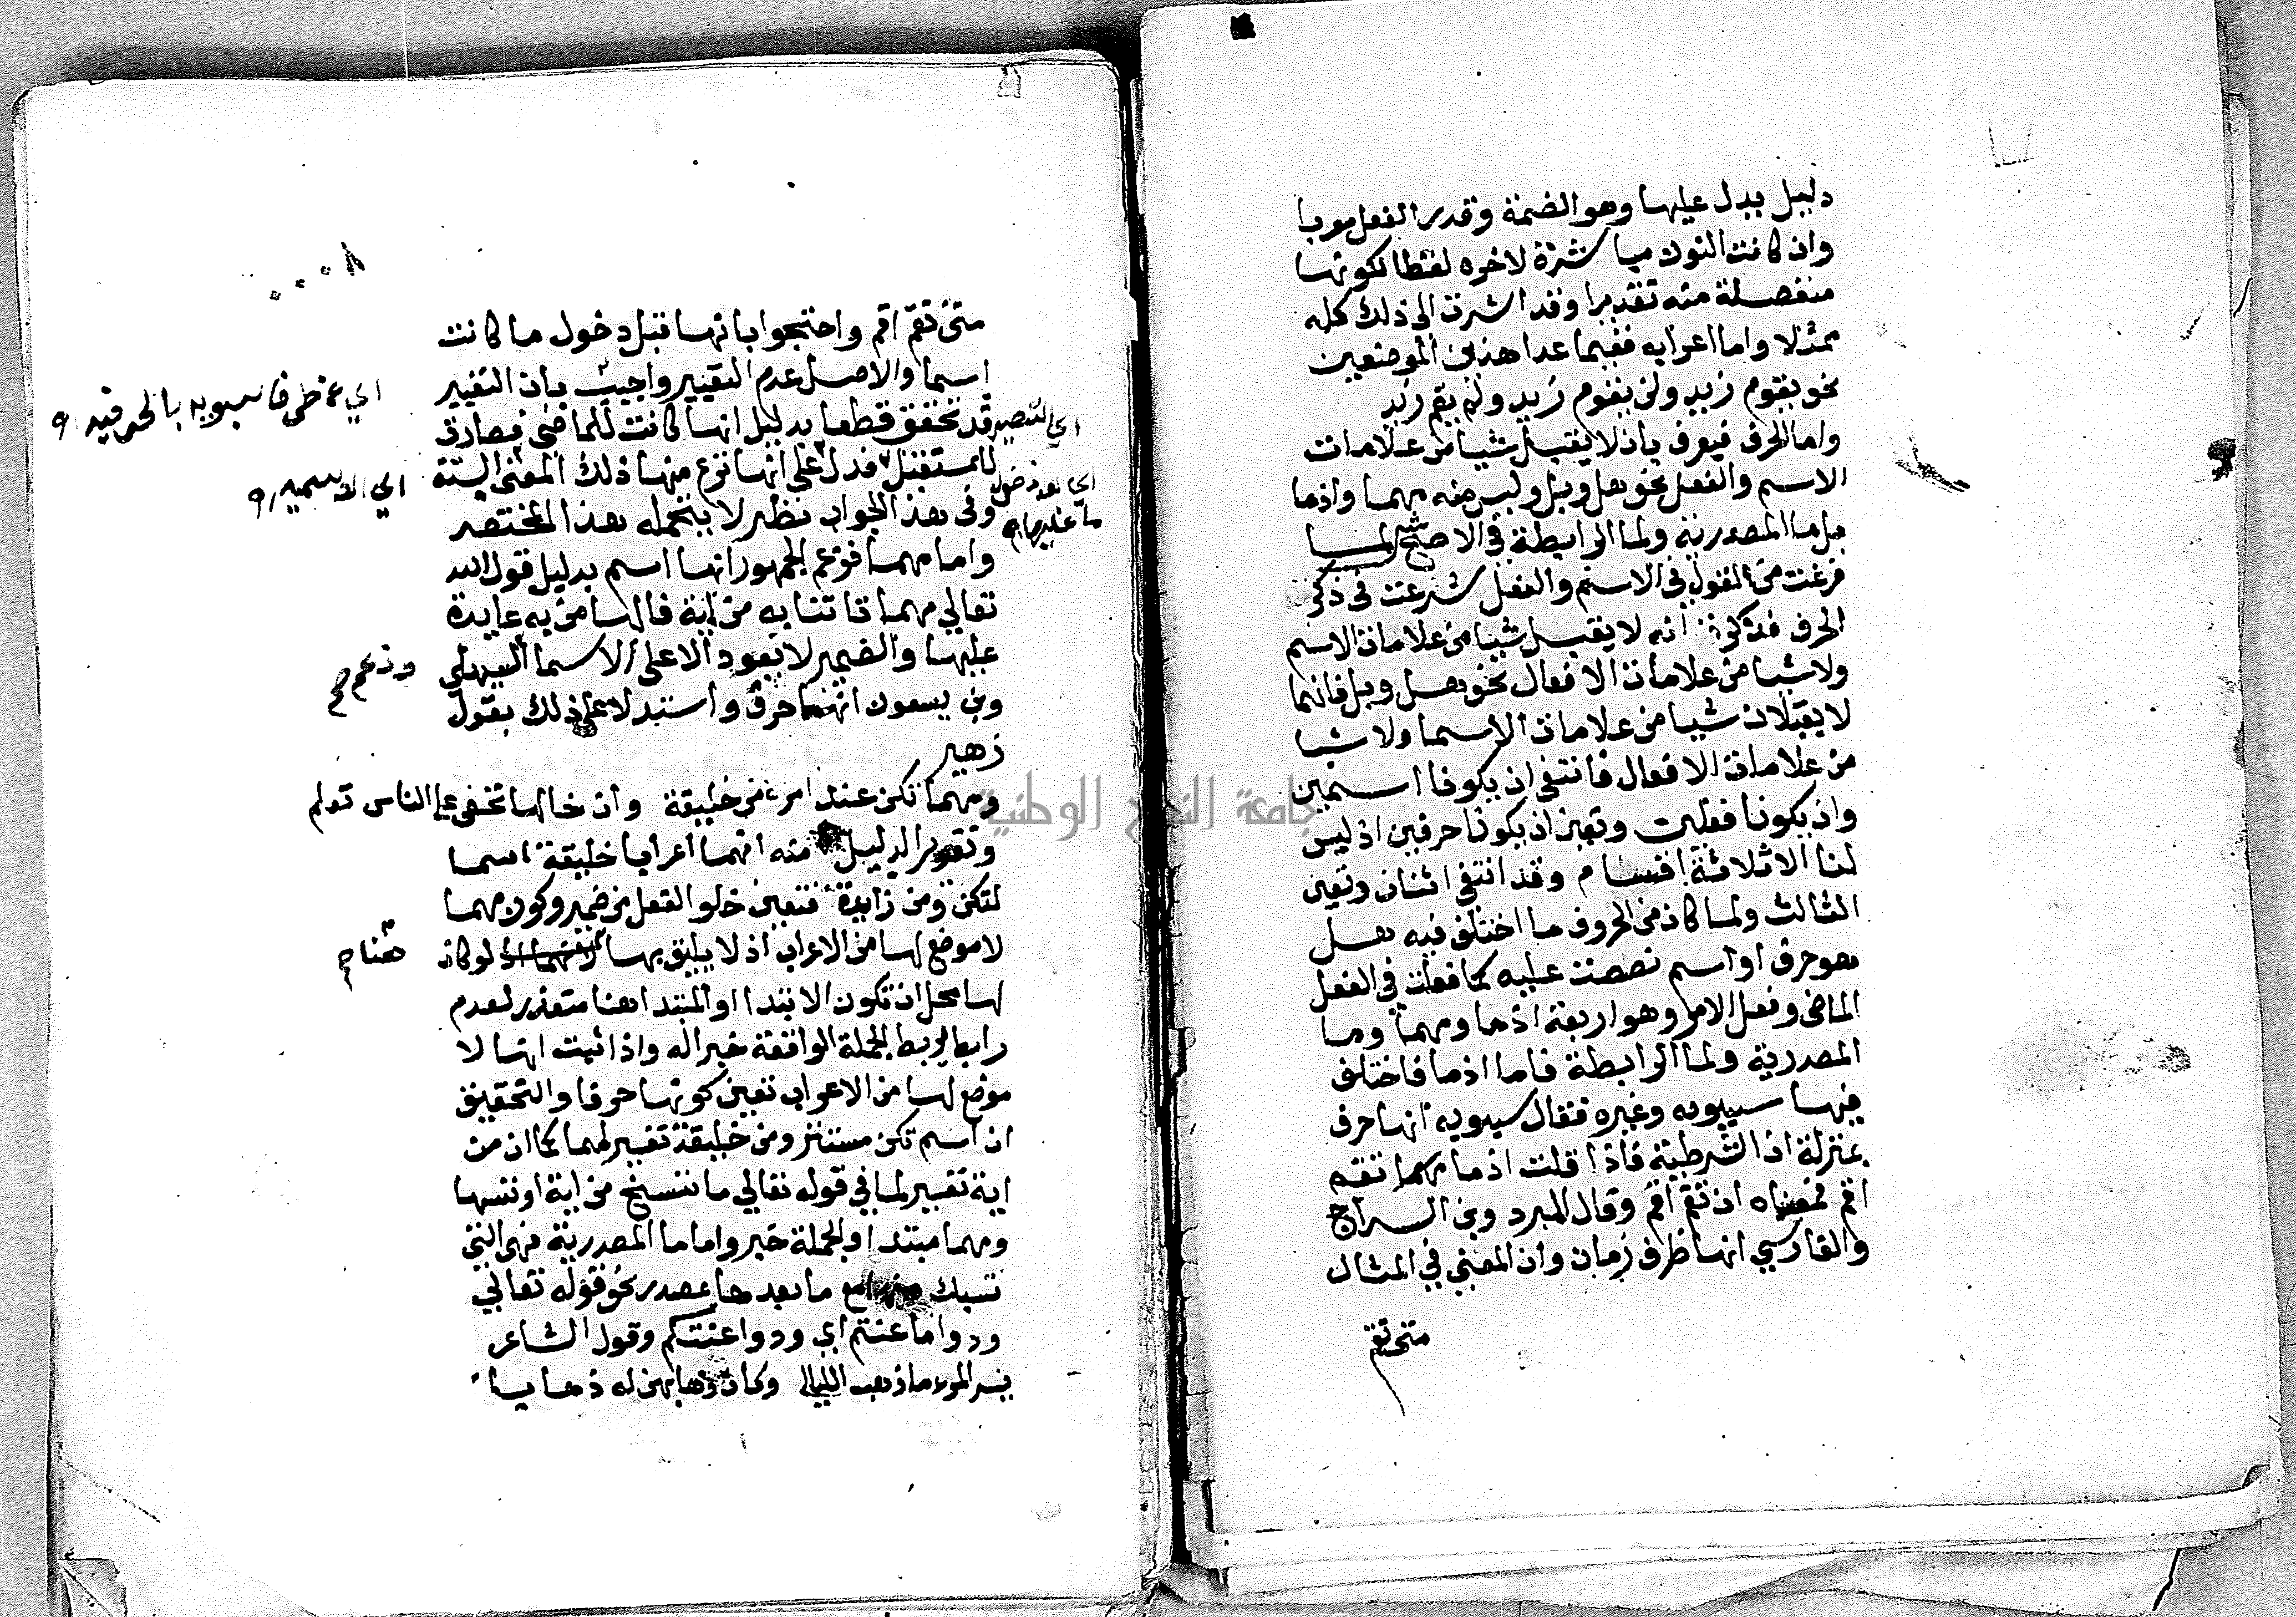 دليل يدل عليها وهو الضمة وقدر الفعل معربا
وان كانت النون مباشرة لاخره لفظا لكونها
منفصلة منه تقديرا وقد اشرت الى ذلك كله
ممثلا واما اعرابه ففيما عدا هذين الموضعين
نحو يقوم زيد ولن يقوم زيد ولم يقم زيد
واما الحرف فيعرف بان لا يقبل شيا من علامات
الاسم والفعل نحو هل وبل وليس منه مهما واذما
بل ما المصدرية ولما الرابطة في الاصح ش لما
فرغت من القول في الاسم والفعل شرعت في ذكر
الحرف فذكرت انه لا يقبل شيا من علامات الاسم
ولا شيا من علامات الافعال نحو هل وبل فانهما
لا يقبلان شيا من علامات الاسما ولا شيا
من علامات الافعال فانتفى ان يكونا اسمين
وان يكونا فعلين وتعين ان يكونا حرفين اذ ليس
لنا الا ثلاثة اقسام وقد انتفى اثنان وتعين
الثالث ولما كان من الحروف ما اختلف فيه هل
هو حرف او اسم نصصت عليه كما فعلت في الفعل
الماضي وفعل الامر وهو اربعة اذما ومهما وما
المصدرية ولما الرابطة فاما اذما فاختلف
فيها سيبويه وغيره فقال سيبويه انها حرف
بمنزلة ان الشرطية فاذا قلت اذما مهما تقم
اقم فمعناه ان تقم اقم وقال المبرد وبن السراج
والفارسي انها ظرف زمان وان المعنى في المثال
متى تقم
متى تقم اقم واحتجوا بانها قبل دخول ما كانت
اسما والاصل عدم التغيير واجيب بان التغيير
قد تحقق قطعا بدليل انها كانت للماضي فصارت
للمستقبل فدل على انها نزع منها ذلك المعنى البتة
وفي هذا الجواب نظر لا يتحمله هذا المختصر
واما مهما فزعم الجمهور انها اسم بدليل قول الله
تعالى مهما تاتنا به من اية فالها من به عايدة
عليها والضمير لا يعود الا على الاسما السهيلي
وبن يسعون انها حرف واستدلا على ذلك بقول
زهير
ومهما تكن عند امرء من خليقة وان خالها تخفى على الناس تعلم
وتقرير الدليل منه انهما اعربا خليقة اسما
لتكن ومن زايدة فتعين خلو الفعل من ضمير وكون مهما
لا موضع لها من الاعراب اذ لا يليق بها لو كان
لها محل ان تكون الا بتدا او المبتدا هنا متعذر لعدم
رابط يربط الجملة الواقعة خبرا له واذا ثبت انها لا
موضع لها من الاعراب تعين كونها حرفا والتحقيق
ان اسم تكن مستتر ومن خليقة تفسير لمهما كما ان من
اية تفسير لما في قوله تعالى ما ننسخ من اية او ننسها
ومهما مبتدا والجملة خبر واما ما المصدرية فهي التي
تسبك مع ما بعدها بمصدر نحو قوله تعالى
ودوا ما عنتم اي ودوا عنتكم وقول الشاعر
يسر المرء ما ذهب الليالي وكان ذهابهن له ذهابا
وزعم صح
هنا صح
جامعة النجاح الوطنية